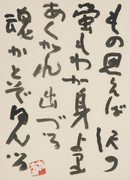 もの思へば沢の
蛍もわが身より
あくがれ出づる
魂かとぞ見る